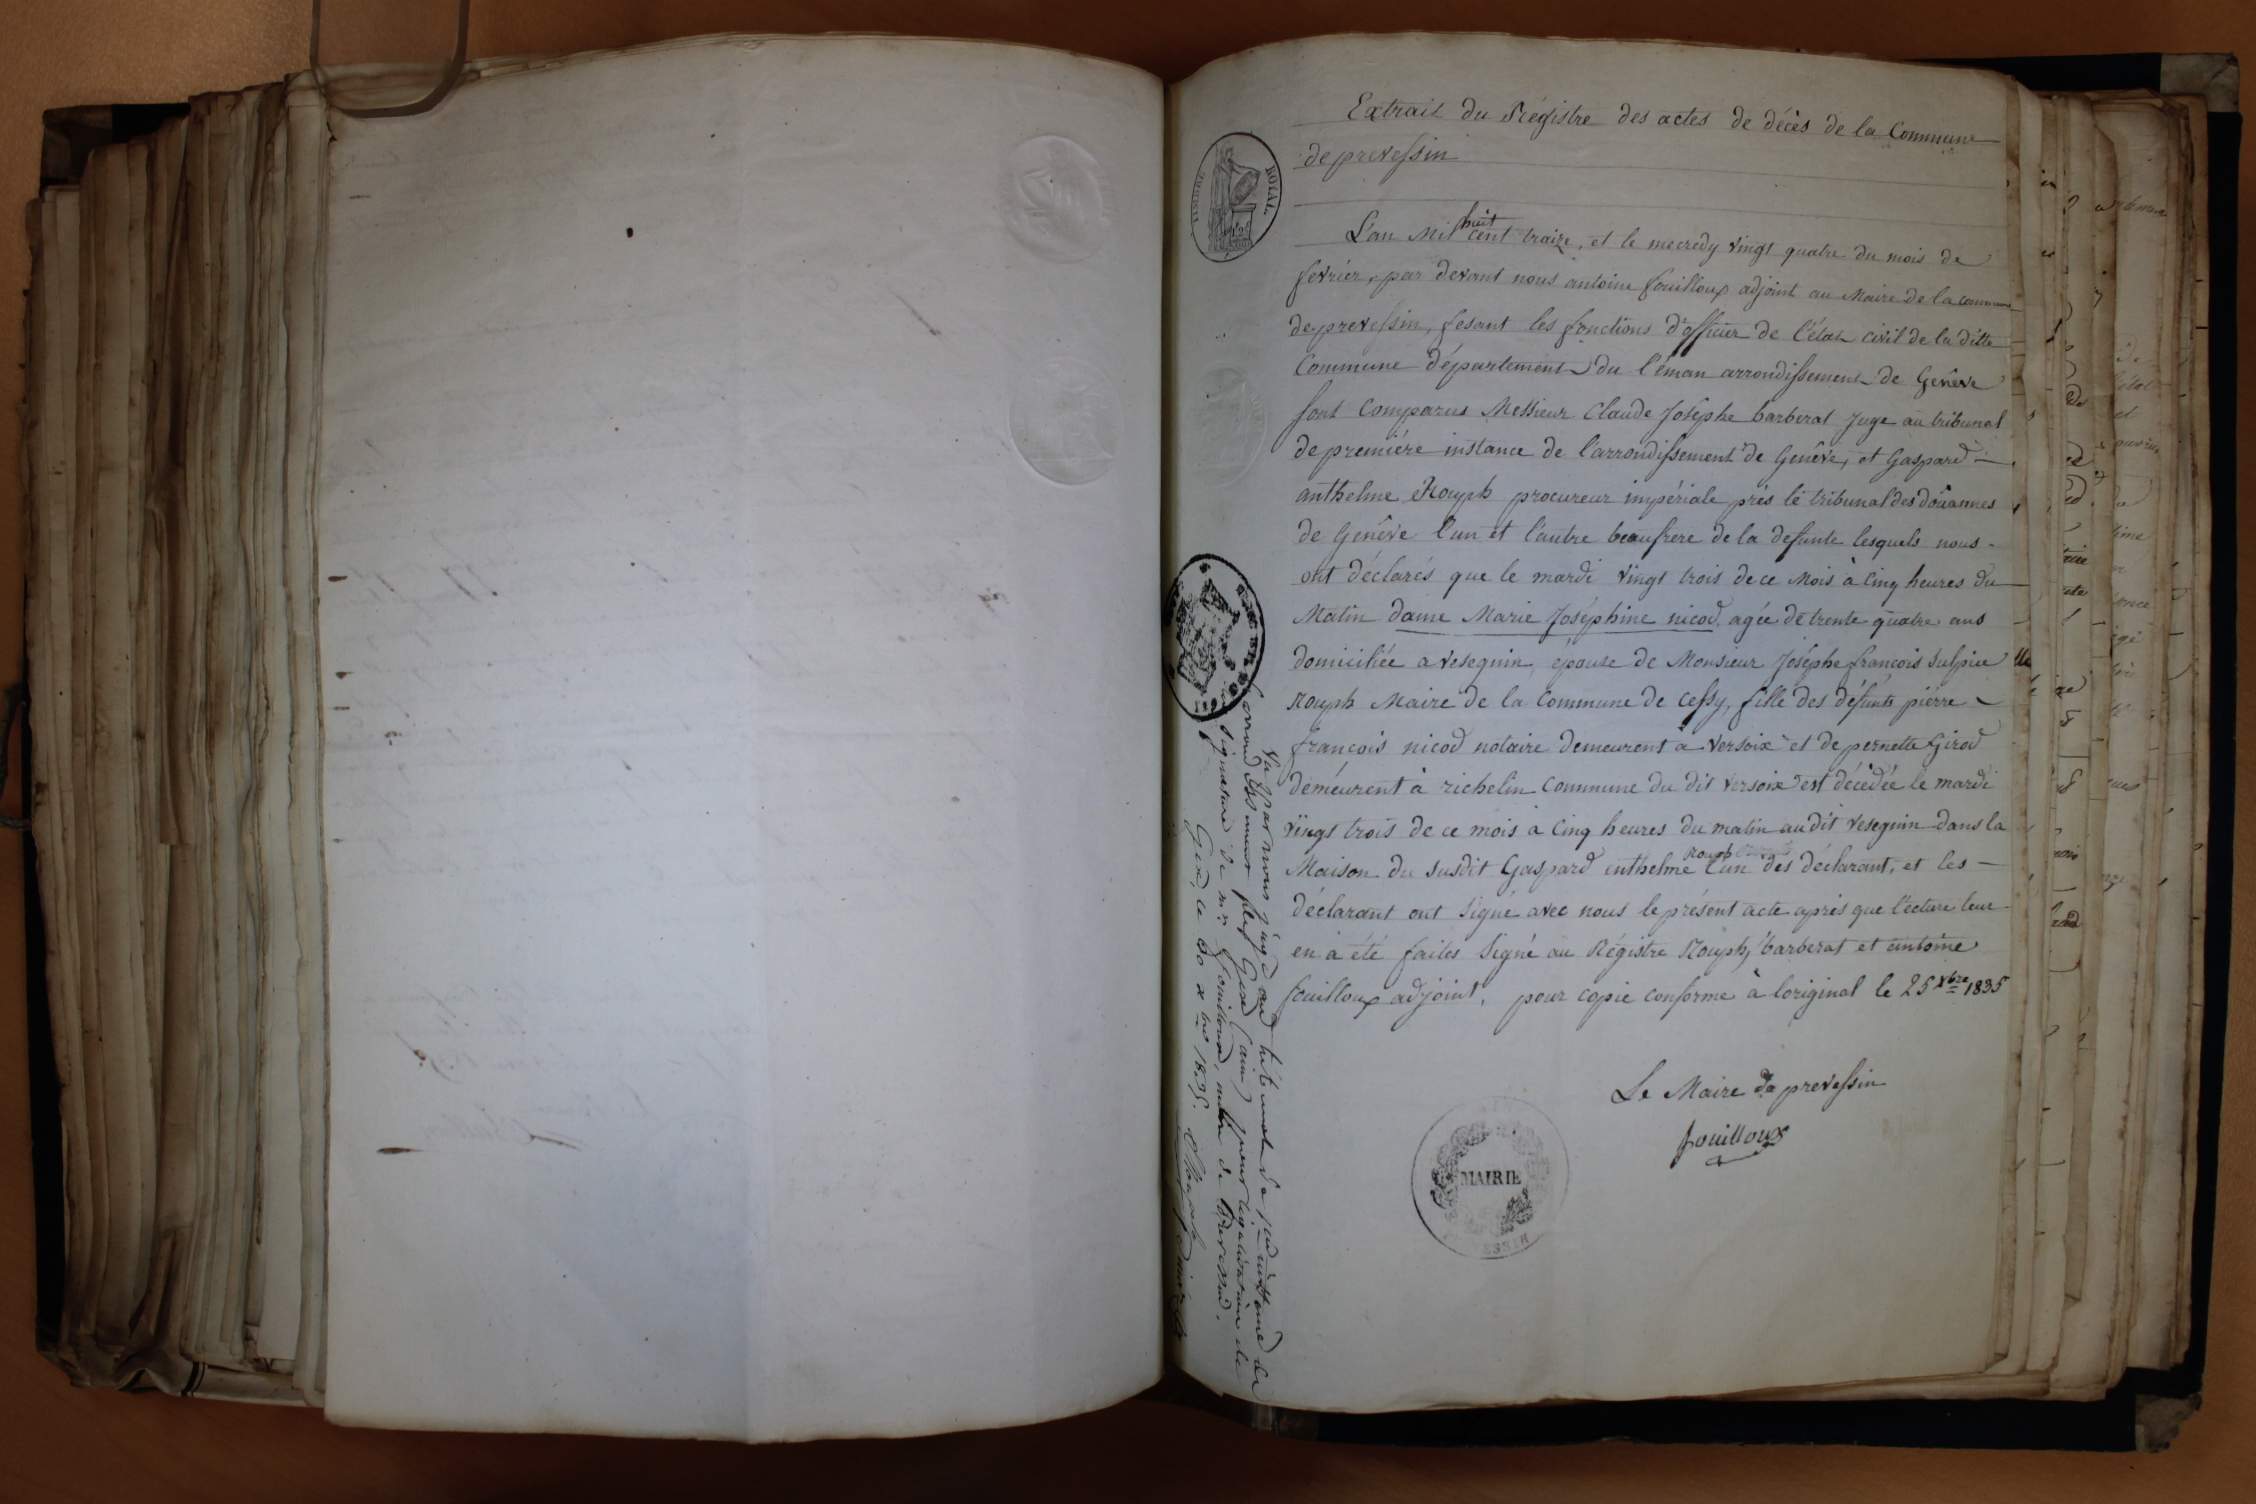 Extrait du Régistre des actes de décès de la Commune
de prevessin
TIMBRE ROYAL
L'an Mil huit cent traize, et le mecredy vingt quatre du mois de
fevrier, par devant nous antoine fouilloux adjoint au Maire de la commune
de prevessin, fesant les fonctions d'officier de l'état civil de la ditte
Commune département du l'éman arrondissement de Genêve
sont comparus Messieur Claude Joséphe barberat Juge au tribunal
de premiére instance de l'arrondissement de Genêve, et Gaspard
anthelme Rouph procureur impériale prés le tribunal des doüannes
de Genêve l'un et l'autre beaufrere de la defunte lesquels nous
ont déclarés que le mardi vingt trois de ce Mois à cinq heures du
Matin dame Marie Joséphine nicod agée de trente quatre ans
domiciliée a vesegnin, épouse de Monsieur Joséphe françois sulpice
Rouph Maire de la Commune de Cessy, fille des défunts piérre
françois nicod notaire demeurent à versoix et de pernette Girod
deméurent à richelin Commune du dit versoix est décédée le mardi
vingt trois de ce mois à cinq heures du matin audit vesegnin dans la
Maison du susdit Gaspard enthelme Rouph l'un des déclarant, et les
déclarant ont signé avec nous le présent acte aprés que l'ecture leur
en à été faites signé au Régistre Rouph, barberat et antoine
fouilloux adjoint, pour copie conforme à loriginal le 25 xbre 1835
Le Maire de prevessin
fouilloux
MAIRIE
Vu par nous juge au tribunal de première instance de
signature de mr. fouilloux, maire de Prevessin.
Gex, ce 30 xbre 1835.